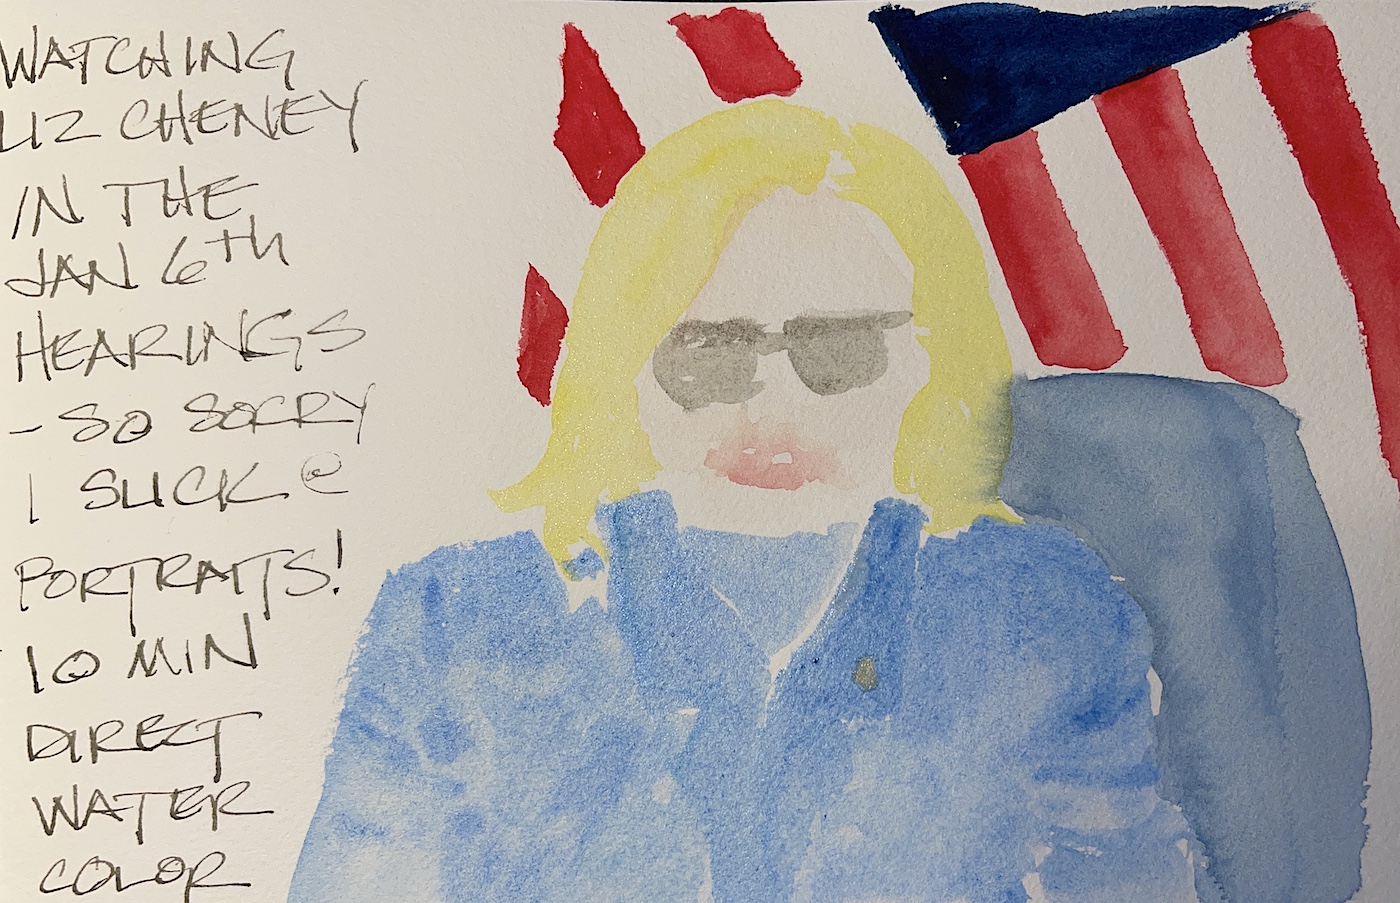 WATCHING
LIZ CHENEY
IN THE
JAN 6th
HEARINGS
- SO SORRY
I SUCK @
PORTRAITS!
10 MIN
DIRECT
WATER
COLOR